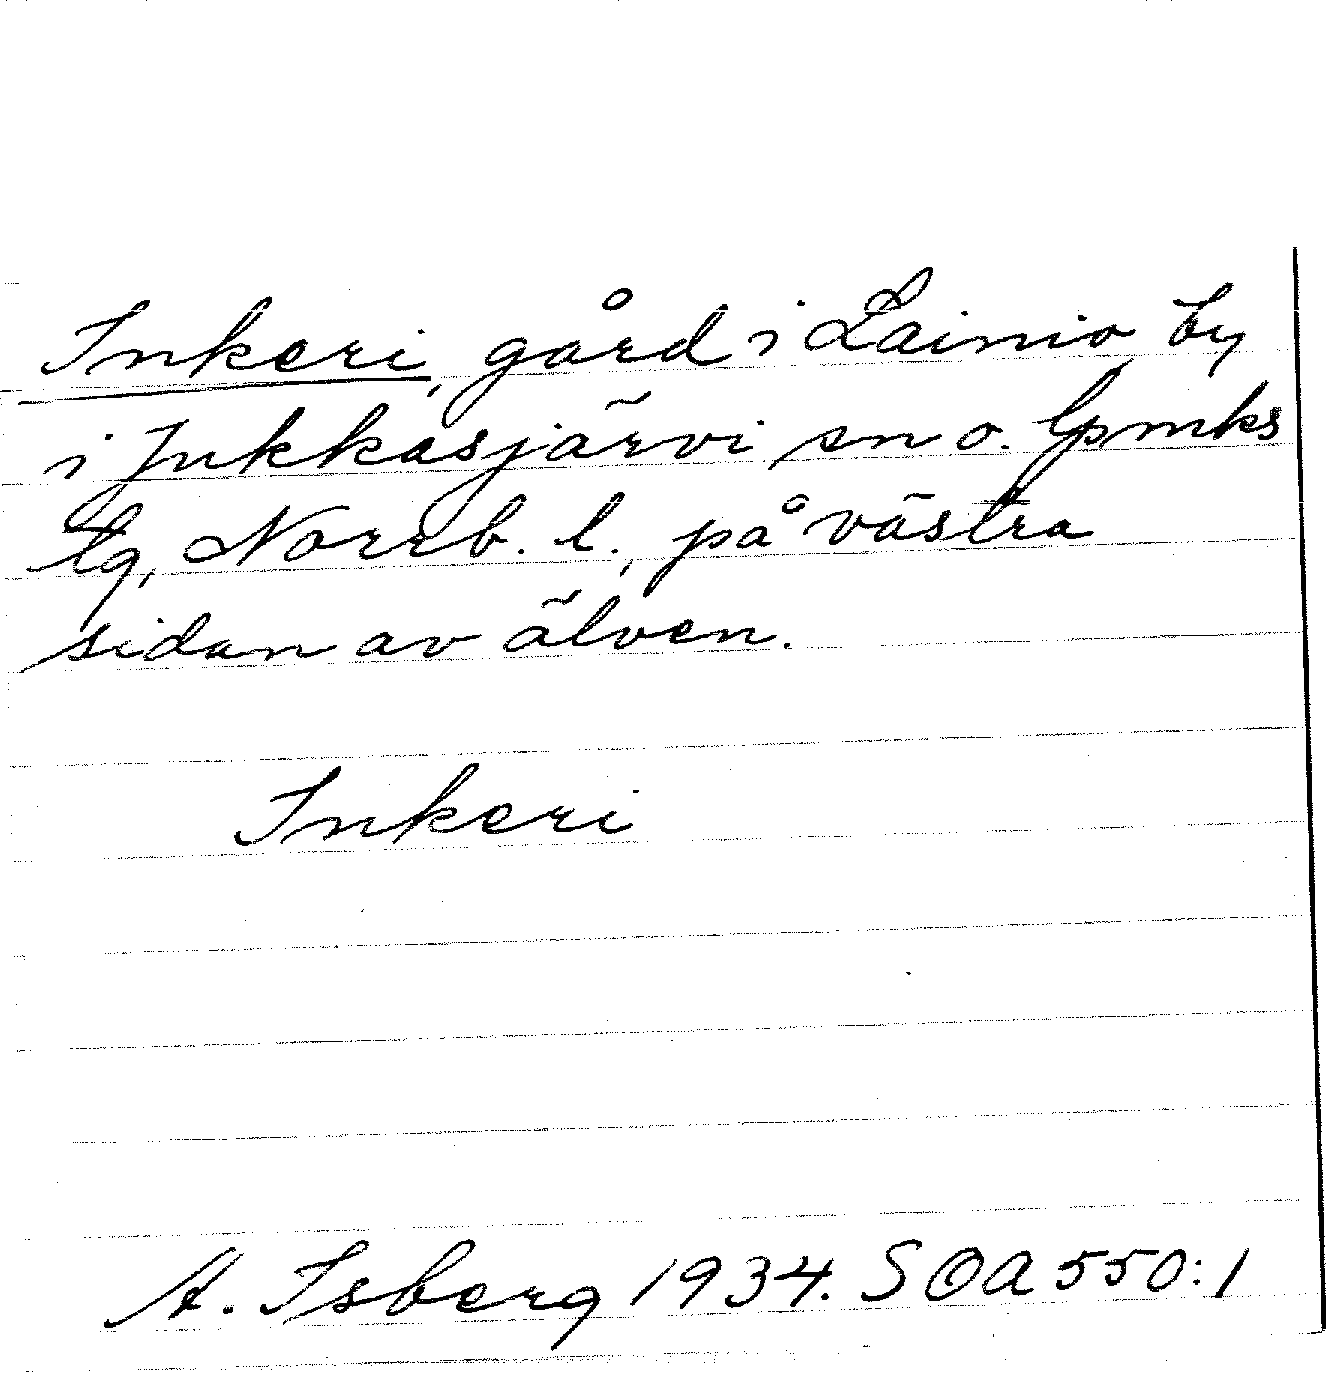 Inkeri, gård i Lainio by
i Jukkasjärvi sn o. lpmks
tg, Norrb. l., på västra
sidan av älven.
Inkeri
A. Isberg 1934. SOA 550:1